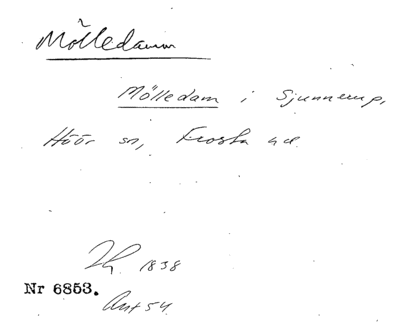 Mölledamm
Mölledam i Sjunnerup,
Höör sn, Frosta hd
1838
Nr 6853.
Ant 54